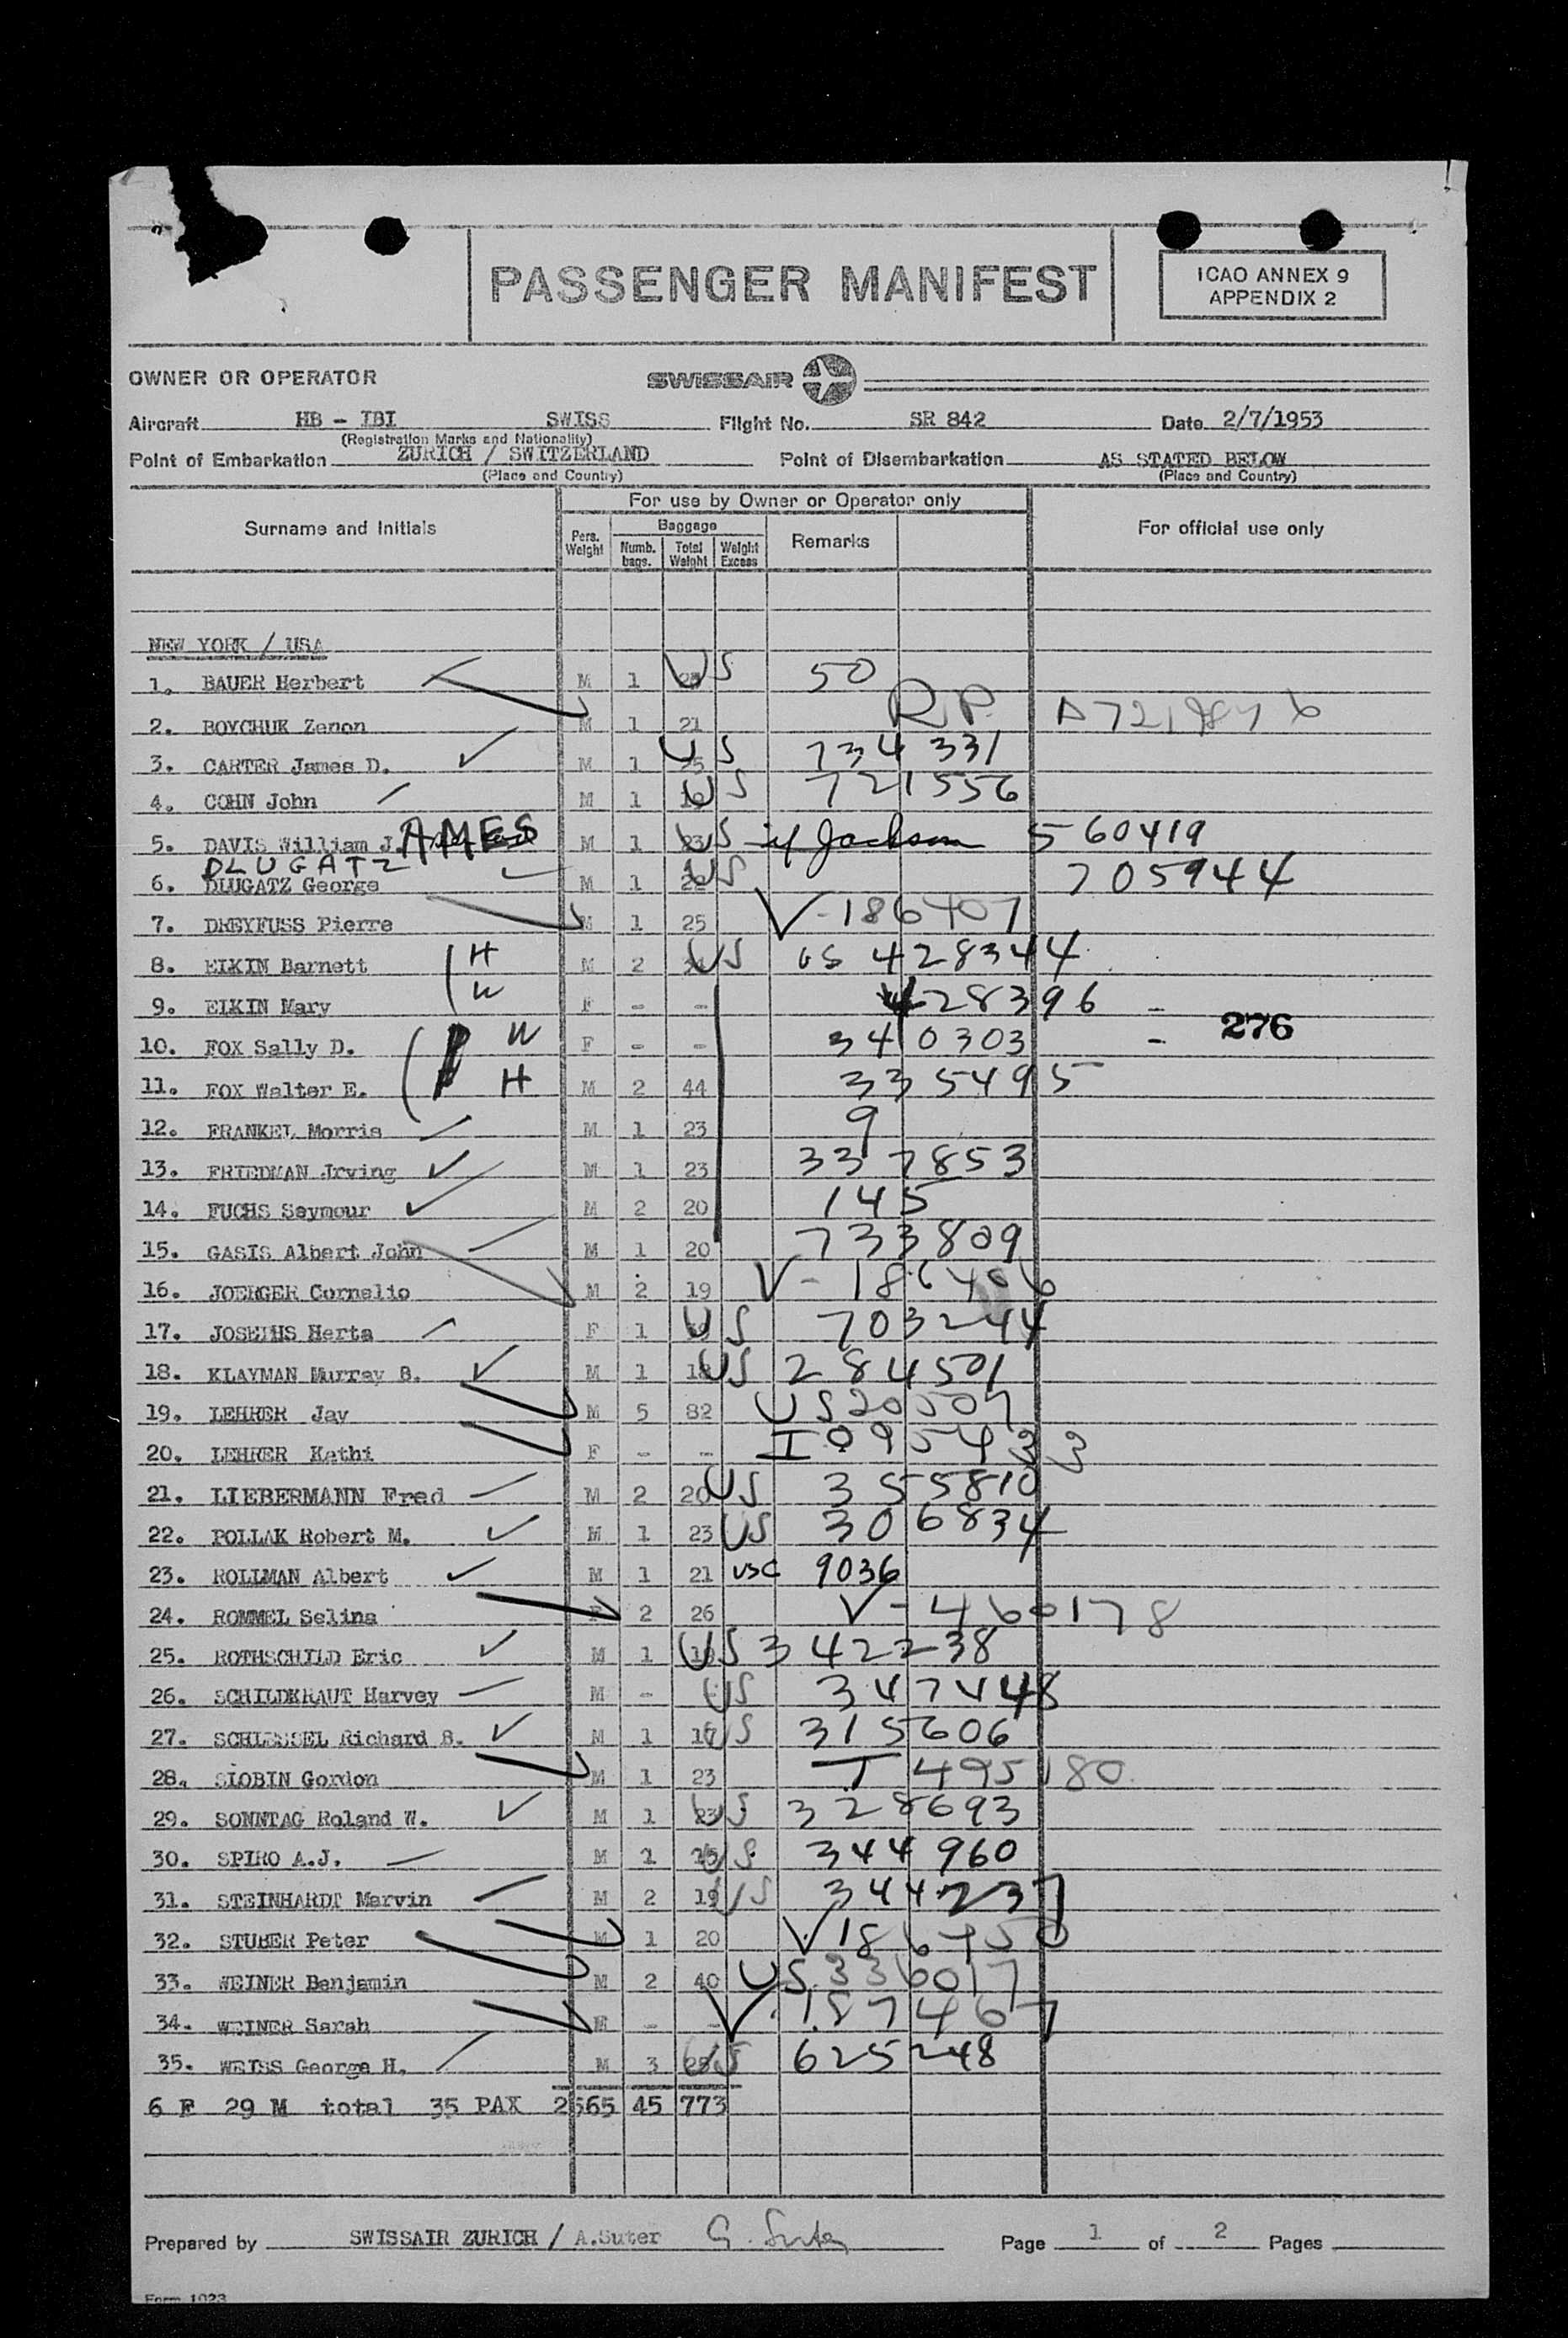 PASSENGER MANIFEST
ICAO ANNEX 9
APPENDIX 2
OWNER OR OPERATOR SWISSAIR
Aircraft HB - IBI SWISS Flight No. SR 842 Date 2/7/1953
(Registration Marks and Nationality)
Point of Embarkation ZURICH / SWITZERLAND Point of Disembarkation AS STATED BELOW
(Place and Country) (Place and Country)
For use by Owner or Operator only
Surname and Initials Pers. Weight Baggage Remarks For official use only
Numb. bags. Total Weight Weight Excess
NEW YORK / USA
1. BAUER Herbert M 1 US 50
2. BOYCHUK Zenon M 1 21 R.P.
3. CARTER James D. M 1 US 734 331
4. COHN John M 1 US 721556
5. DAVIS William J. AMES M 1 23 US Jackson 560419
DLUGATZ
6. DLUGATZ George M 1 US 705944
7. DREYFUSS Pierre M 1 25 V-186407
8. EIKIN Barnett H M 2 US US 428344
9. EIKIN Mary W F - - 428396 -
276
10. FOX Sally D. W F - - 340303 -
11. FOX Walter E. H M 2 44 335495
12. FRANKEL Morris M 1 23 9
13. FRIEDMAN Irving M 1 23 337853
14. FUCHS Seymour M 2 20 145
15. GASIS Albert John M 1 20 733809
16. JOERGER Cornelio M 2 19 V-186406
17. JOSEPHS Herta F 1 US 703244
18. KLAYMAN Murray B. M 1 18 US 284501
19. LEHRER Jay M 5 82 US20507
20. LEHRER Kathi F - -
21. LIEBERMANN Fred M 2 20 US 355810
22. POLLAK Robert M. M 1 23 US 306834
23. ROLLMAN Albert M 1 21 USC 9036
24. ROMMEL Selina F 2 26 V-460178
25. ROTHSCHILD Eric M 1 US 342238
26. SCHILDKRAUT Harvey M - US 347448
27. SCHLESSEL Richard S. M 1 17 US 315606
28. SLOBIN Gordon M 1 23 T 495180
29. SONNTAG Roland W. M 1 23 US 328693
30. SPIRO A.J. M 1 US 344960
31. STEINHARDT Marvin M 2 19 US 344237
32. STUBER Peter M 1 20 V186450
33. WEINER Benjamin M 2 40 US 336017
34. WEINER Sarah - - V 187467
35. WEISS George H. M 3 US 625248
6 F 29 M total 35 PAX 2565 45 773
Prepared by SWISSAIR ZURICH / A.Suter Page 1 of 2 Pages
Form 1023